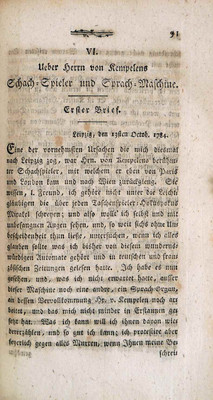 91
VI.
Ueber Herrn von Kempelens
Schach-Spieler und Sprach-Maschine.
Erster Brief.
Leipzig, den 17sten Octob. 1784.
Eine der vornehmsten Ursachen die mich diesmal
nach Leipzig zog, war Hrn. von Kempelens berühm-
ter Schachspieler, mit welchem er eben von Paris
und London kam und nach Wien zurückgieng. Sie
wissen, l. Freund, ich gehöre nicht unter das Leicht-
gläubigen die über jeden Taschenspieler-Hokuspokus
Mirakel schreyen; und also wollt' ich selbst und mit
unbefangnen Augen sehen, und, so weit sichs ohne Un-
bescheidenheit thun liesse, untersuchen, wann ich alles
glauben sollte was ich bisher von diesem wunderns-
würdigen Automate gehört und in teutschen und fran-
zösischen Zeitungen gelesen hatte. Ich habe es nun
gesehen, und, was ich nicht erwartet hatte, ausser
dieser Maschine noch eine andre, ein Sprach-Organ,
an dessen Vervollkommnung Hr. v. Kempelen noch ar-
beitet, und das mich nicht minder in Erstaunen ge-
setzt hat. Was ich kann will ich ihnen davon wie-
dererzählen, und so gut ich kann; ich protestire aber
feyerlich gegen alles Murren, wenn Ihnen meine Be-
schrei-